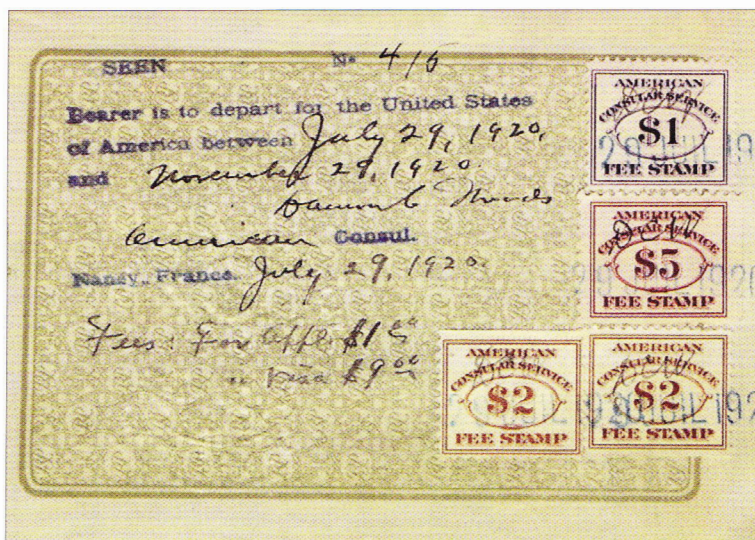 SEEN No 415
Bearer is to depart for the United States
of America between July 29, 1920,
and November 29, 1920.
Damon C Woods
American Consul.
Nancy, France. July 29, 1920.
Fees: For Appl. $1.00
" visa $9.00
AMERICAN
CONSULAR SERVICE
$1
FEE STAMP
29 JUIL 19
AMERICAN
CONSULAR SERVICE
DCW
$5
FEE STAMP
29 1920
AMERICAN
CONSULAR SERVICE
$2
FEE STAMP
AMERICAN
CONSULAR SERVICE
DCW
$2
FEE STAMP
JUIL 192